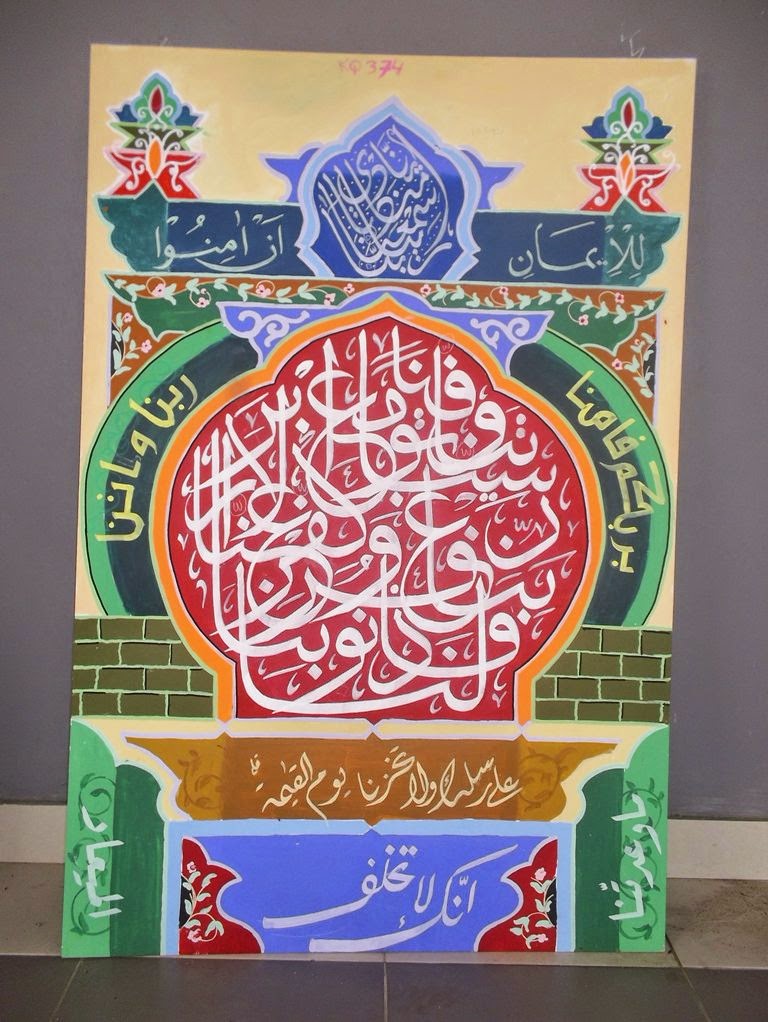 KQ 374
ربنا اننا سمعنا مناديا ينادي
لِلْإِيمَانِ
اَنْ اٰمِنُوْا
بربكم فامنا
ربنا فاغفر لنا ذنوبنا وكفر عنا سيئاتنا وتوفنا مع الابرار
ربنا وءاتنا
ما وعدتّنا
على رسلك ولا تخزنا يوم القيٰمة
انّك لا تخلف
الميعاد